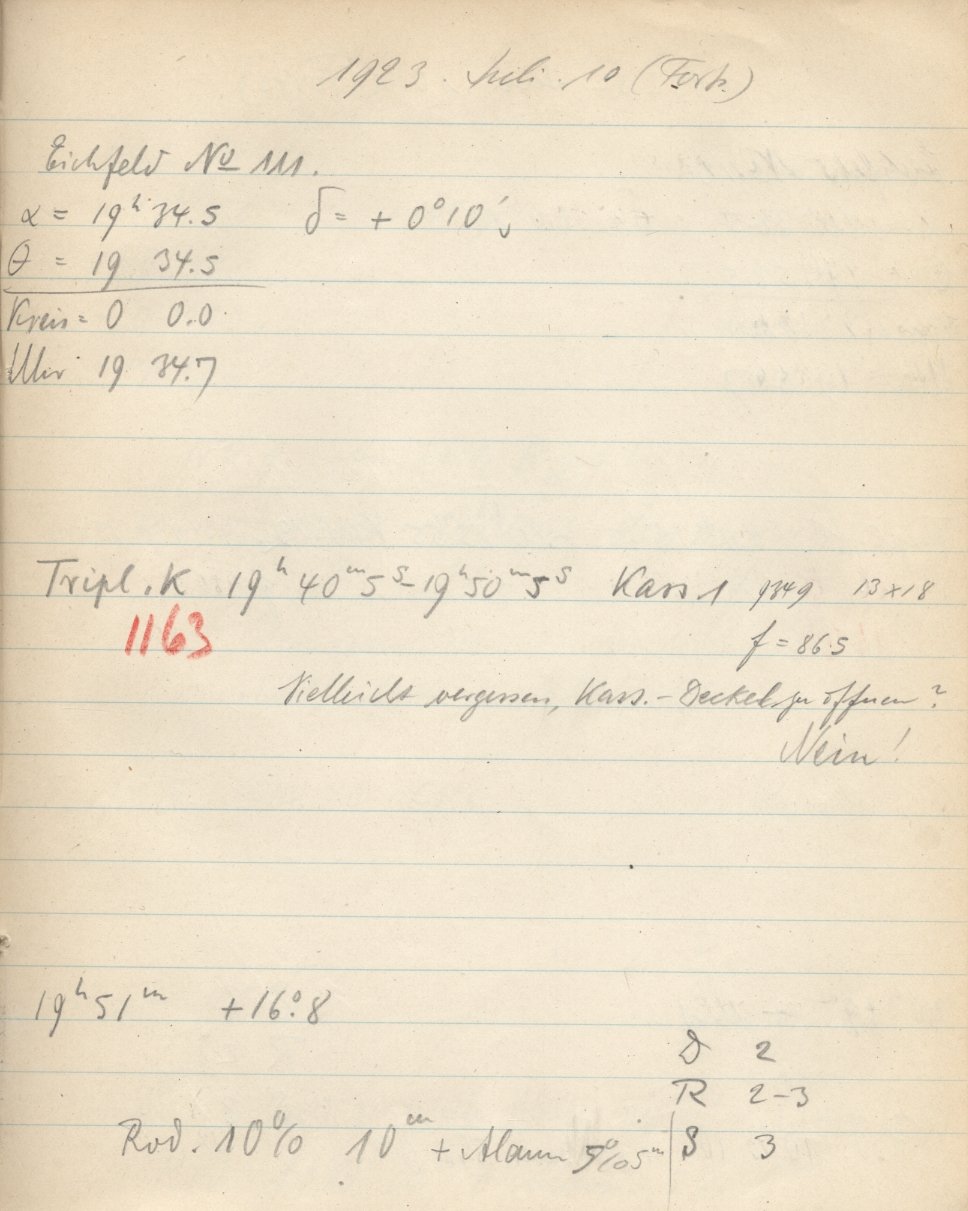 1923. Juli. 10 (Forts.)
Eichfeld No 111.
α = 19ʰ 34.5 δ = + 0° 10'
θ = 19 34.5
Kreis = 0 0.0
Uhr 19 34.7
Tripl. K 19ʰ 40ᵐ 5ˢ - 19ʰ 50ᵐ 5ˢ Kass 1 9349 13×18
1163 f = 86.5
Vielleicht vergessen, Kass.-Deckel zu öffnen?
Nein!
19ʰ 51ᵐ +16°.8
D 2
R 2-3
Rod. 10% 10ᵐ + Alaun 5% 5ᵐ S 3